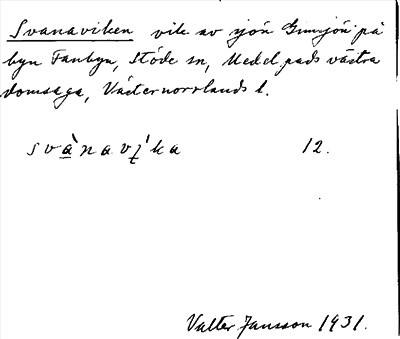 Svanaviken vik av sjön Gransjön på
byn Fanbyn, Stöde sn, Medelpads västra
domsaga, Västernorrlands l.
svànavíka 12.
Valter Jansson 1931.